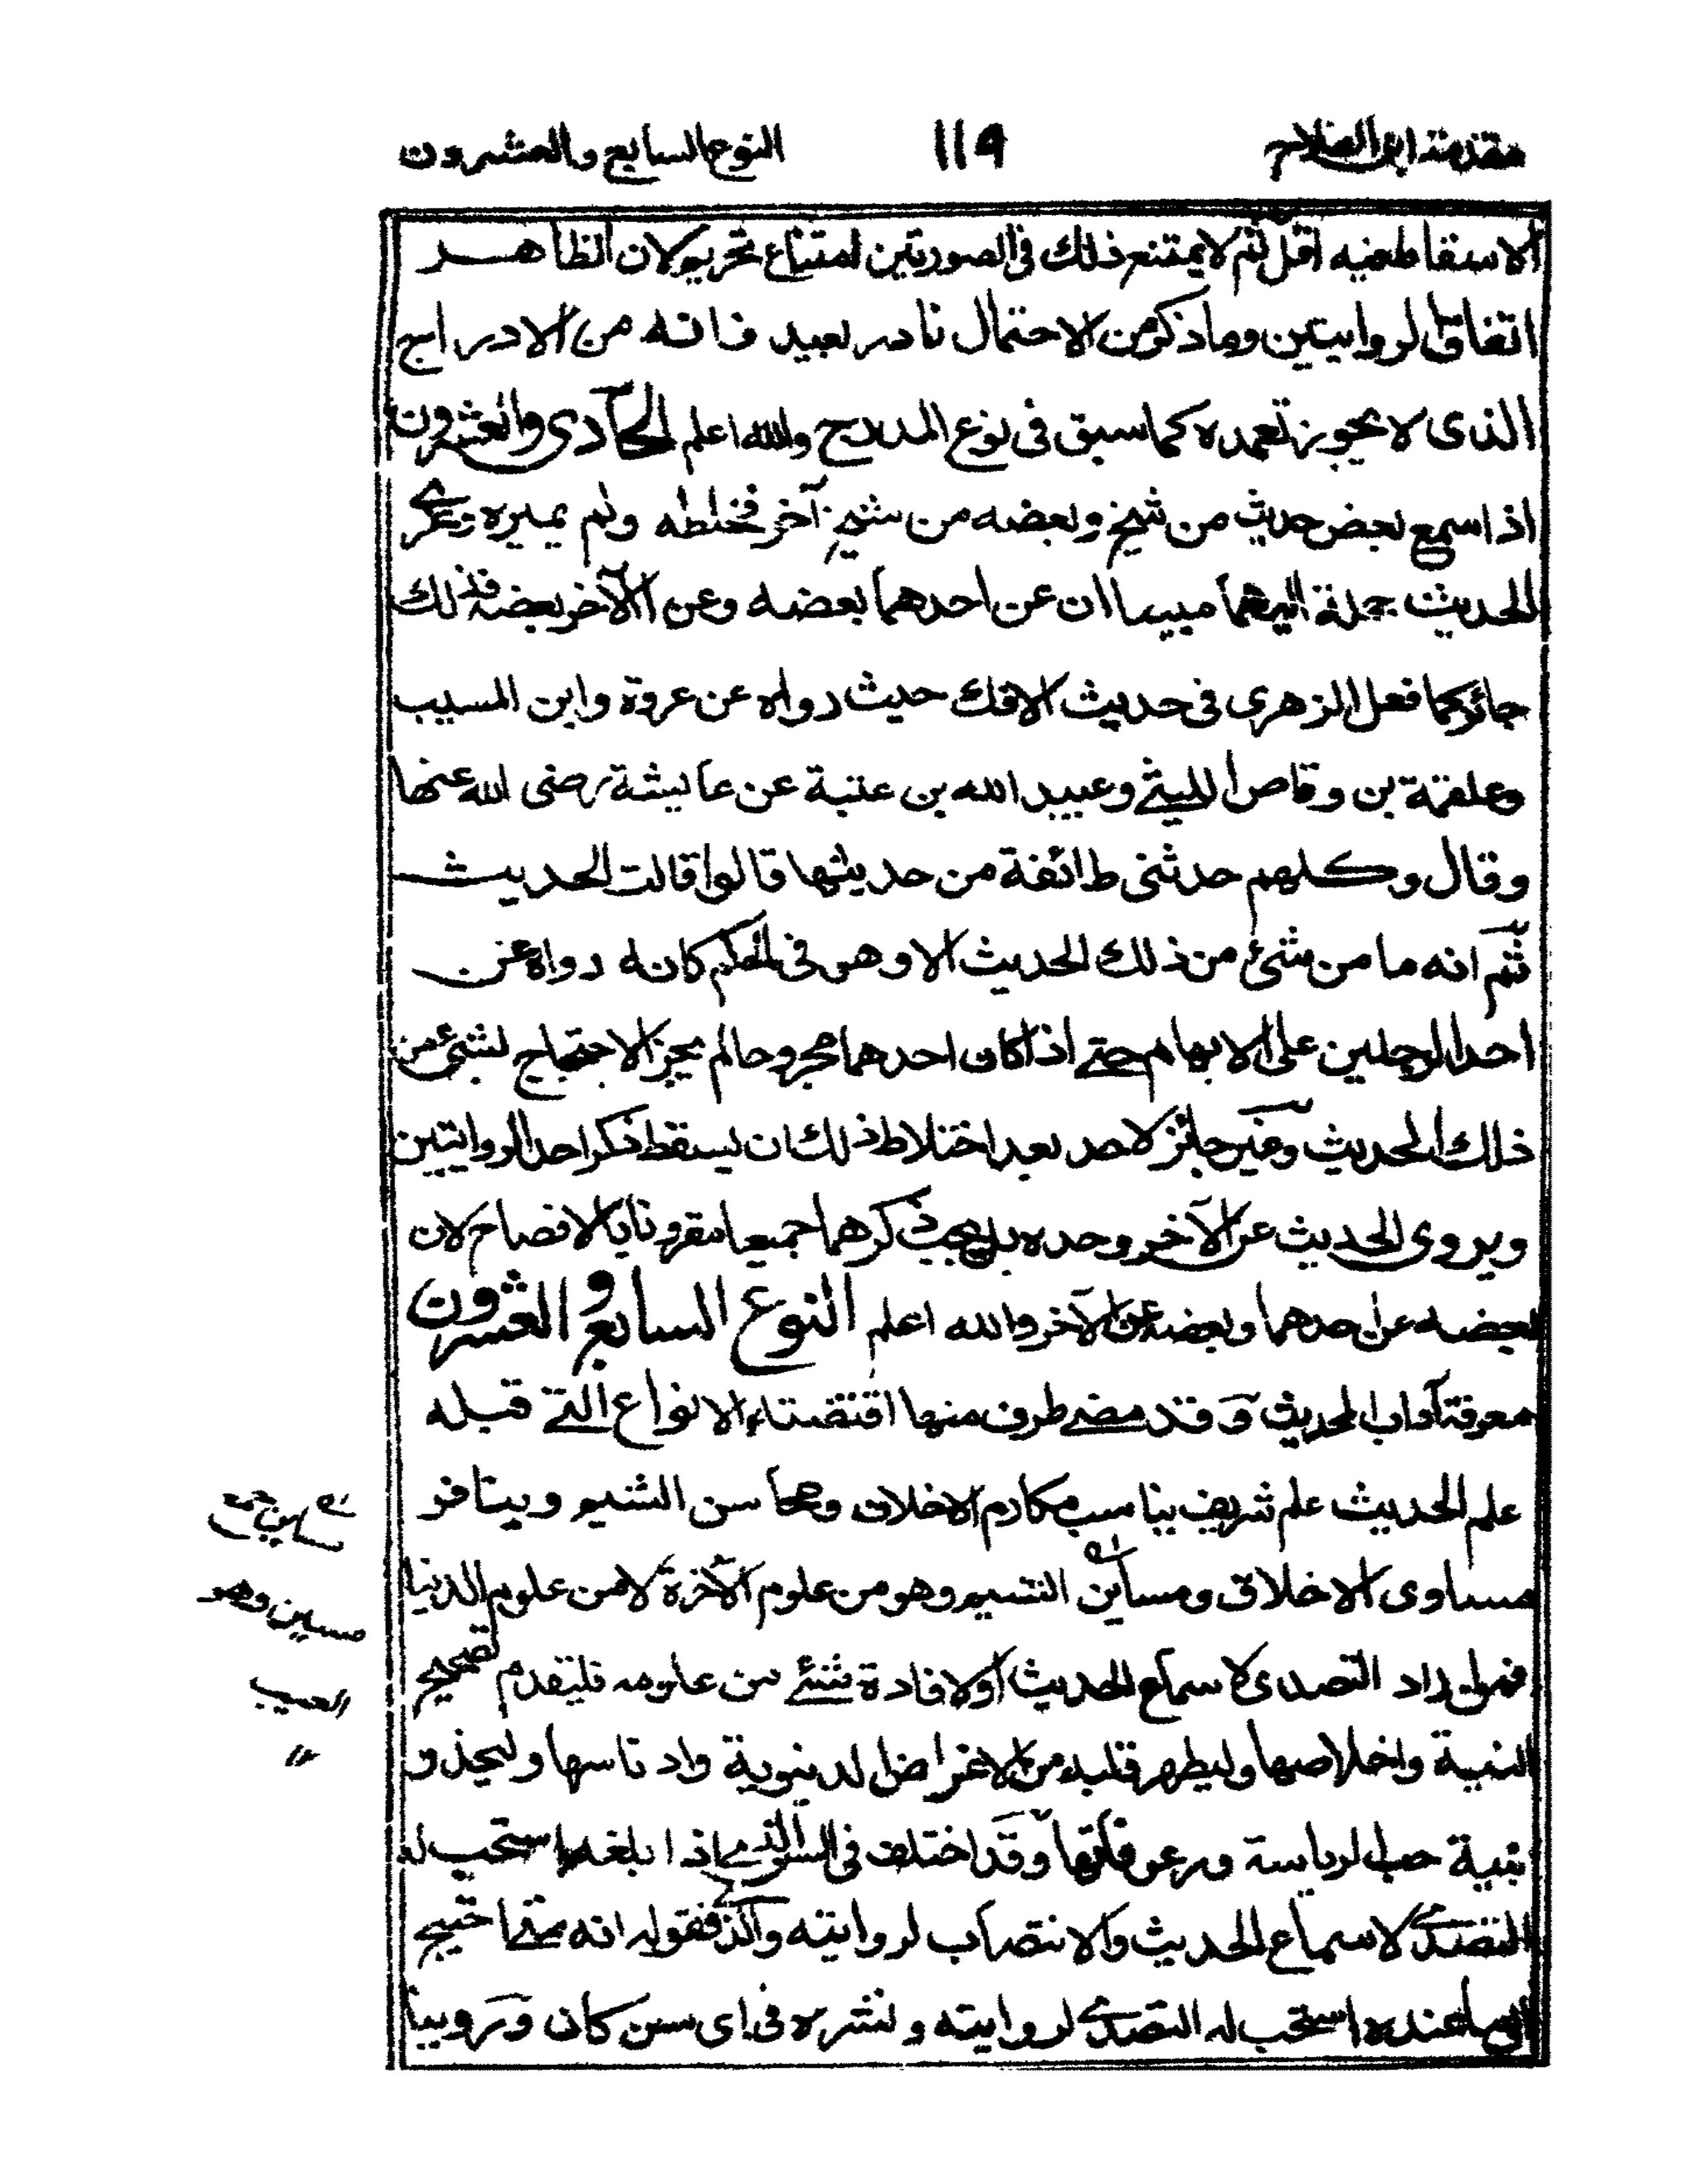 مقدمة ابن الصلاح ١١٩ النوع السابع والعشرون
الاسقاط عنيه اقل ثم لا يمتنع ذلك فى الصورتين امتناع تحريم لان الظاهر
اتفاق الروايتين وما ذكر من الاحتمال نادر بعيد فانه من الادراج
الذى لا يجوز تعمده كما سبق فى نوع المدرج والله اعلم الحادى والعشرون
اذا سمع بعض حديث من شيخ وبعضه من شيخ آخر فخلطه ولم يميزه وعزى
الحديث جملة اليهما مبينا ان عن احدهما بعضه وعن الآخر بعضه فذلك
جائز كما فعل الزهرى فى حديث الافك حيث رواه عن عروة وابن المسيب
وعلقمة بن وقاص الليثى وعبيد الله بن عتبة عن عايشة رضى الله عنها
وقال وكلهم حدثنى طائفة من حديثها قالوا قالت الحديث
ثم انه ما من شئ من ذلك الحديث الا وهو فى الحكم كانه رواه عن
احد الرجلين على الابهام حتى اذا كان احدهما مجروحا لم يجز الاحتجاج بشئ من
ذلك الحديث وغير جائز لاحد بعد اختلاط ذلك ان يسقط ذكر احد الروايتين
ويروى الحديث عن الآخر وحده بل يجب ذكرهما جميعا مقرونا بالافصاح لان
بعضه عن احدهما وبعضه عن الآخر والله اعلم النوع السابع والعشرون
معرفة آداب المحديث وقد مضى طرف منها اقتضتاء الانواع التى قبله
علم الحديث علم شريف يناسب مكارم الاخلاق ومحاسن الشيم وينافر
مساوى الاخلاق ومساين الشيم وهو من علوم الآخرة لا من علوم الدنيا
فمن اراد التصدى لاسماع الحديث او لافادة شئ من علومه فليقدم تصحيح
النية واخلاصها وليطهر قلبه من الاغراض الدنيوية وادناسها وليحذر
بلية حب الرياسة ورعوناتها وقد اختلف فى السن الذى اذا بلغه استحب له
التصدى لاسماع الحديث والانتصاب لروايته والذى نقوله انه متى احتيج
الى ما عنده استحب له التصدى لروايته ونشره فى اى سن كان وروينا
مساين جمع
مسين وهو
العيب
١٢